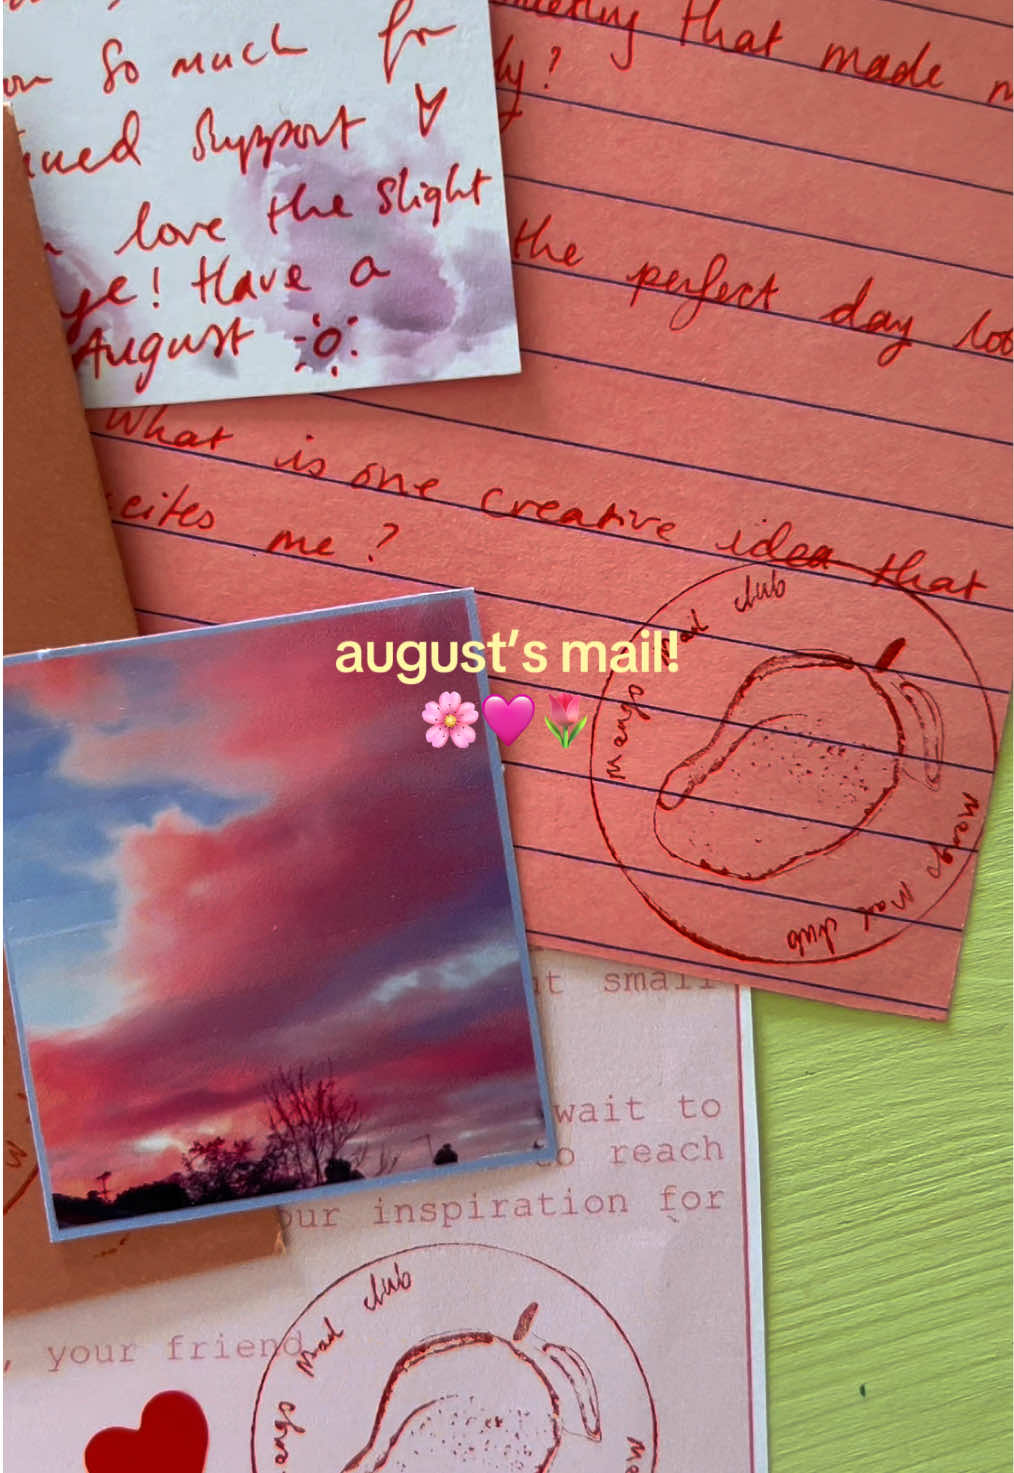 so much for
Support
love the slight
! Have a
August
that made
?
the perfect day
What is one creative idea that
me?
Mango Mail club
Mango Mail club
august’s mail!
🌸🩷🌷
small
wait to
to reach
our inspiration for
, your friend
Mail club